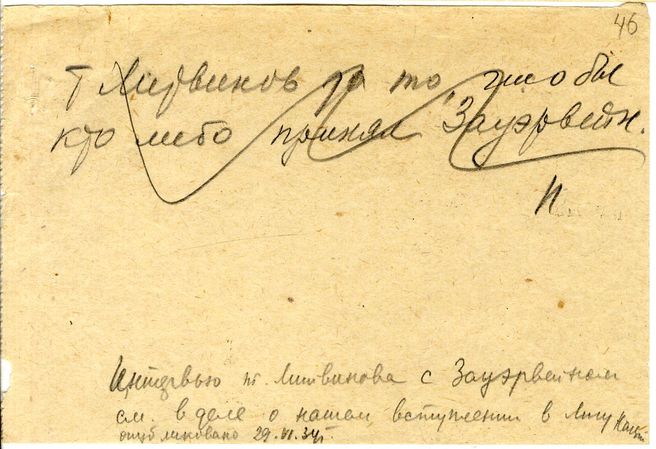 46
т Литвинов за то чтобы
кто либо принял Зауэрвейн.
П
Интервью т. Литвинова с Зауэрвейном
см. в деле о нашем вступлении в Лигу Наций
опубликовано 29.VI.34г.